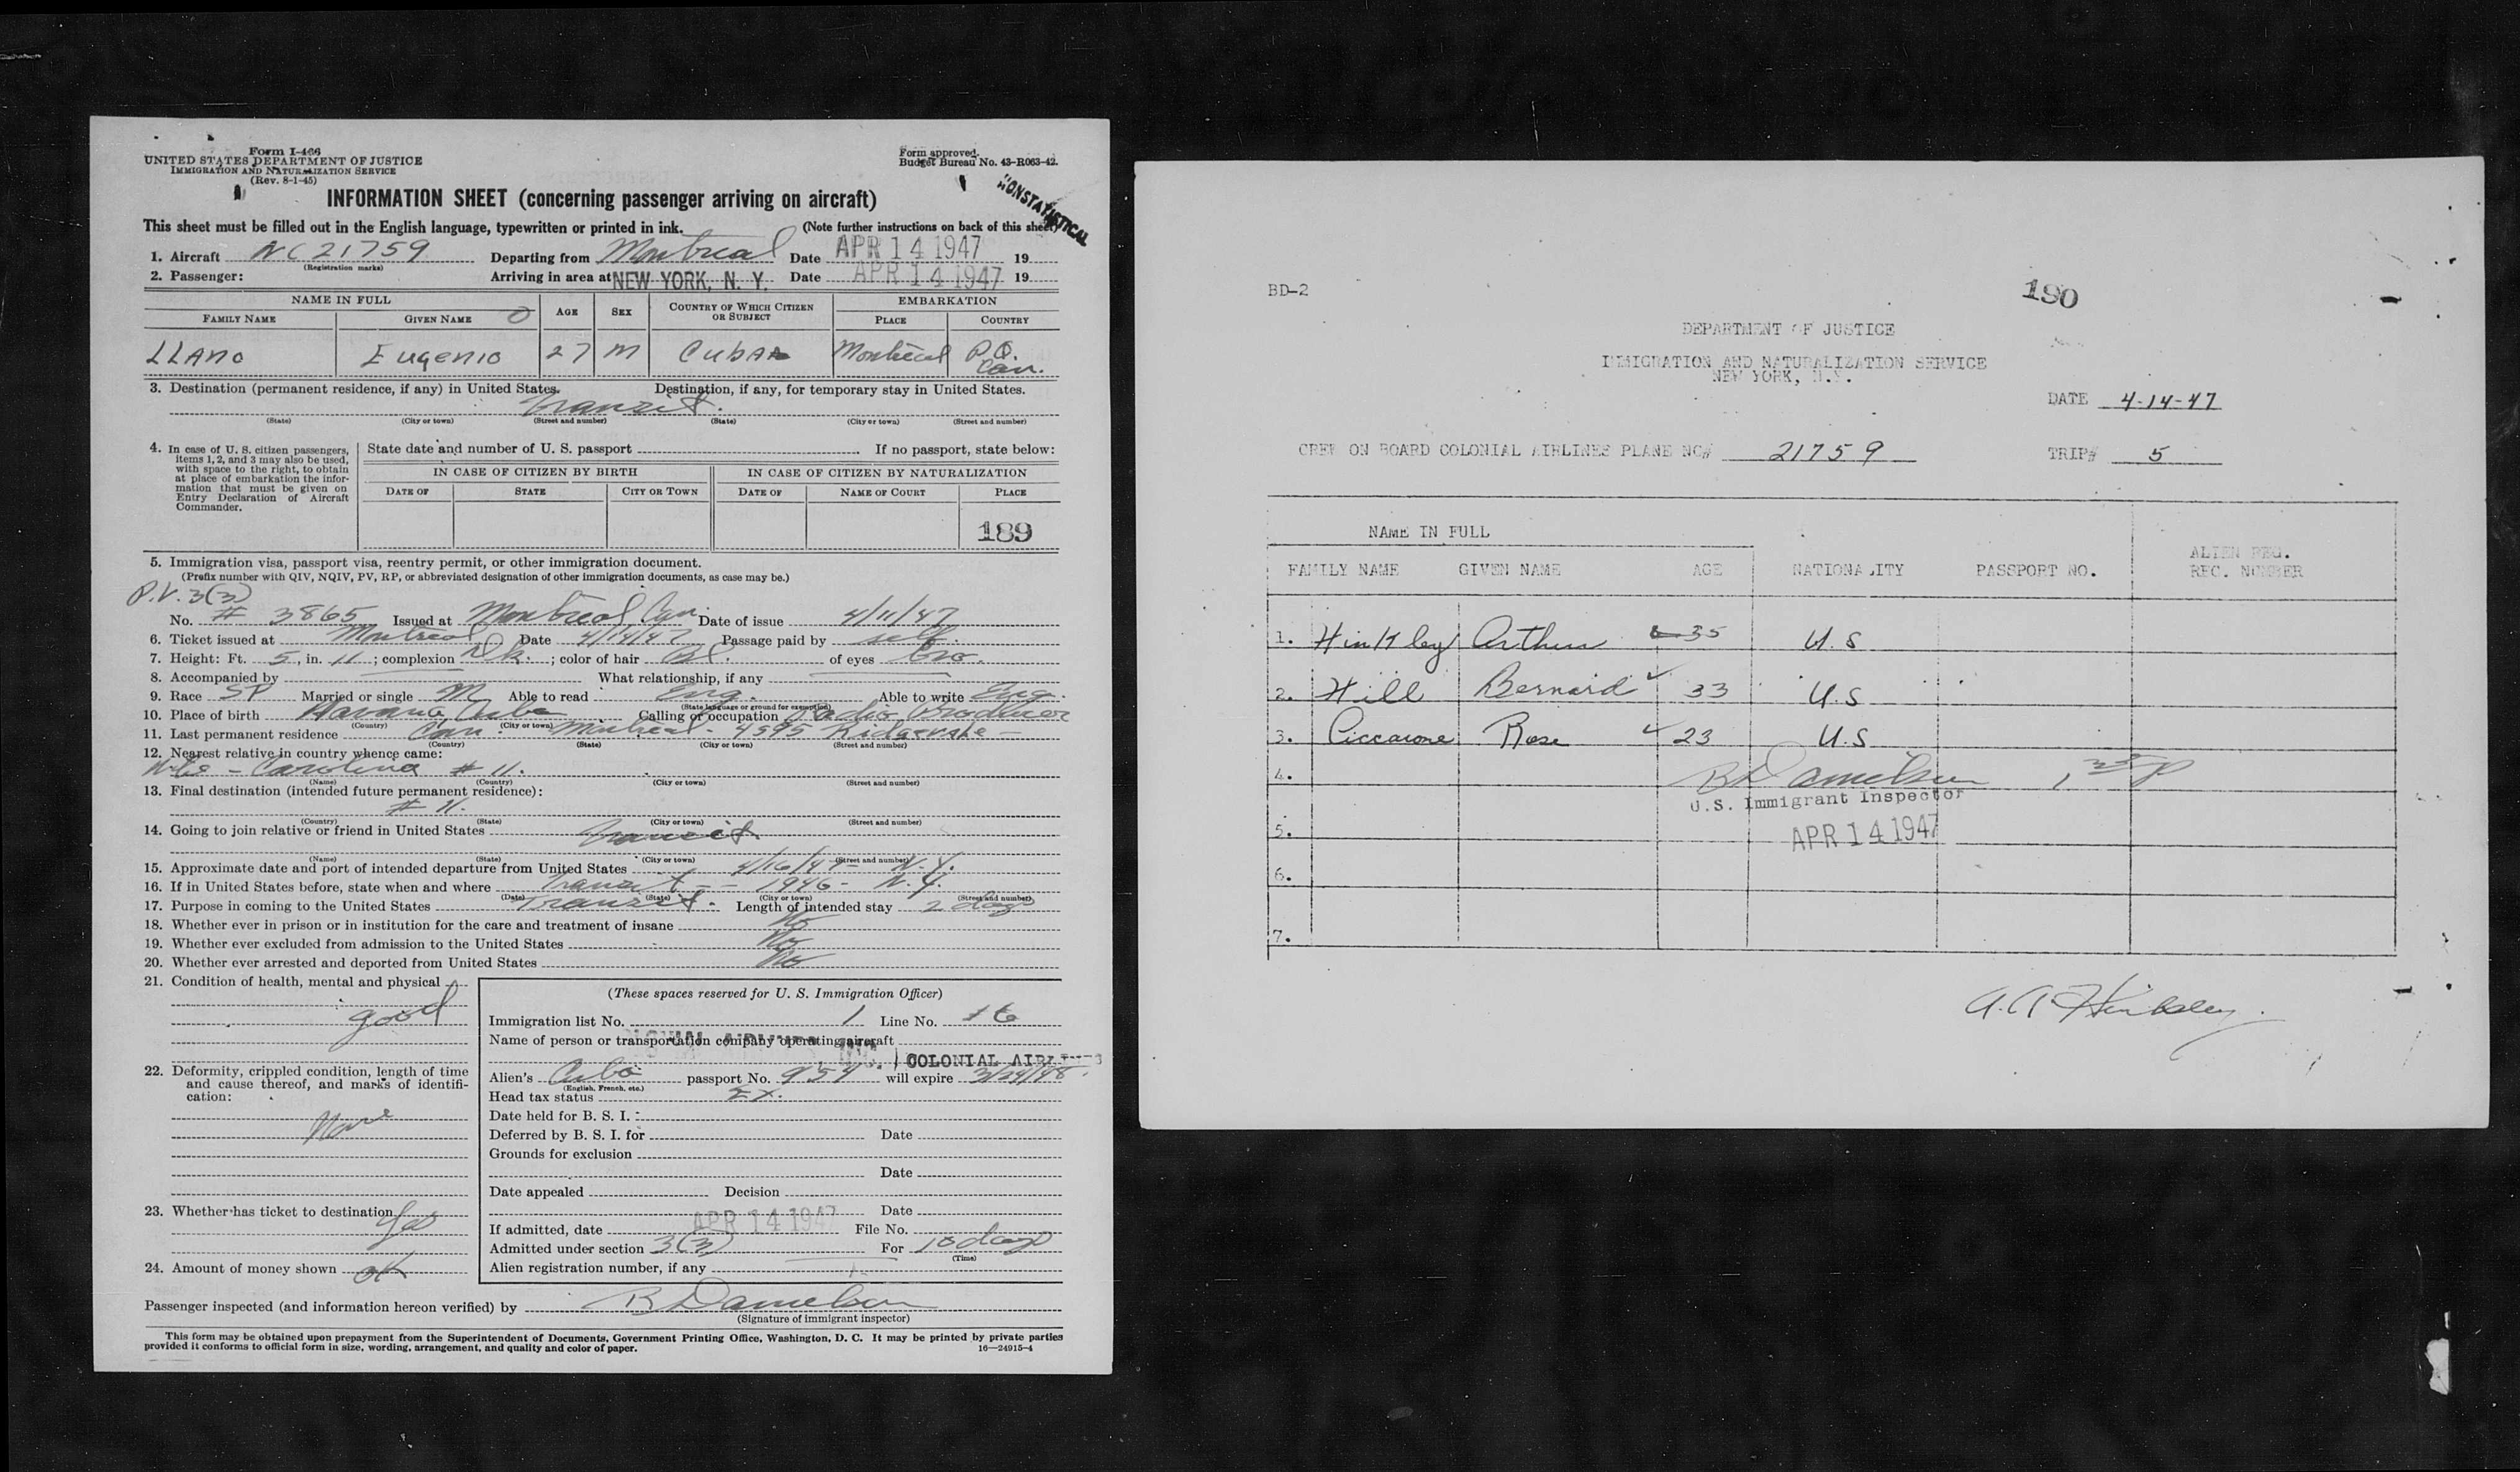 Form I-466
UNITED STATES DEPARTMENT OF JUSTICE
IMMIGRATION AND NATURALIZATION SERVICE
(Rev. 8-1-45)
Form approved.
Budget Bureau No. 43-R063-42.
NONSTATISTICAL
INFORMATION SHEET (concerning passenger arriving on aircraft)
This sheet must be filled out in the English language, typewritten or printed in ink. (Note further instructions on back of this sheet)
1. Aircraft NC21759 Departing from Montreal Date APR 14 1947 19
(Registration marks)
2. Passenger: Arriving in area at NEW YORK, N. Y. Date APR 14 1947 19
NAME IN FULL AGE SEX COUNTRY OF WHICH CITIZEN OR SUBJECT EMBARKATION
FAMILY NAME GIVEN NAME PLACE COUNTRY
LLANO Eugenio 27 M Cuba Montreal P.Q. Can.
3. Destination (permanent residence, if any) in United States. Destination, if any, for temporary stay in United States.
Transit.
(State) (City or town) (Street and number) (State) (City or town) (Street and number)
4. In case of U. S. citizen passengers, items 1, 2, and 3 may also be used, with space to the right, to obtain at place of embarkation the information that must be given on Entry Declaration of Aircraft Commander.
State date and number of U. S. passport If no passport, state below:
IN CASE OF CITIZEN BY BIRTH IN CASE OF CITIZEN BY NATURALIZATION
DATE OF STATE CITY OR TOWN DATE OF NAME OF COURT PLACE
189
5. Immigration visa, passport visa, reentry permit, or other immigration document.
(Prefix number with QIV, NQIV, PV, RP, or abbreviated designation of other immigration documents, as case may be.)
P.V. 3(3)
No. # 3865 Issued at Montreal Can. Date of issue 4/11/47
6. Ticket issued at Montreal Date 4/14/47 Passage paid by self.
7. Height: Ft. 5, in. 11; complexion Dk.; color of hair Bl. of eyes bro.
8. Accompanied by What relationship, if any
9. Race SP Married or single M Able to read Eng. Able to write Eng.
(State language or ground for exemption)
10. Place of birth Havana Cuba Calling or occupation Radio Producer
(Country) (City or town)
11. Last permanent residence Can. Montreal - 4595
(Country) (State) (City or town) (Street and number)
12. Nearest relative in country whence came:
Wife - Carolina # 11.
(Name) (Country) (City or town) (Street and number)
13. Final destination (intended future permanent residence):
# 11.
(Country) (State) (City or town) (Street and number)
14. Going to join relative or friend in United States Transit
(Name) (State) (City or town) (Street and number)
15. Approximate date and port of intended departure from United States 4/16/47 - N.Y.
16. If in United States before, state when and where Transit - - 1946 - N.Y.
(Date) (State) (City or town) (Street and number)
17. Purpose in coming to the United States Transit. Length of intended stay 2 days
18. Whether ever in prison or in institution for the care and treatment of insane No
19. Whether ever excluded from admission to the United States No
20. Whether ever arrested and deported from United States No
21. Condition of health, mental and physical
good
22. Deformity, crippled condition, length of time and cause thereof, and marks of identification:
None
23. Whether has ticket to destination Yes
24. Amount of money shown OK
(These spaces reserved for U. S. Immigration Officer)
Immigration list No. 1 Line No. 16
Name of person or transportation company operating aircraft
COLONIAL AIRLINES
Alien's Cuba passport No. 954 will expire 3/24/48.
(English, French, etc.)
Head tax status Ex.
Date held for B. S. I.:
Deferred by B. S. I. for Date
Grounds for exclusion
Date
Date appealed Decision
Date
If admitted, date APR 14 1947 File No.
Admitted under section 3(3) For 10 days
(Time)
Alien registration number, if any
Passenger inspected (and information hereon verified) by B Danielson
(Signature of immigrant inspector)
This form may be obtained upon prepayment from the Superintendent of Documents, Government Printing Office, Washington, D. C. It may be printed by private parties
provided it conforms to official form in size, wording, arrangement, and quality and color of paper. 16—24915-4
BD-2
190
DEPARTMENT OF JUSTICE
IMMIGRATION AND NATURALIZATION SERVICE
NEW YORK, N.Y.
DATE 4-14-47
CREW ON BOARD COLONIAL AIRLINES PLANE NC# 21759 TRIP# 5
NAME IN FULL
FAMILY NAME GIVEN NAME AGE NATIONALITY PASSPORT NO. ALIEN REG. REC. NUMBER
1. Hinkley Arthur 35 U.S
2. Hill Bernard 33 U.S
3. Ciccarone Rose 23 U.S
4. B Danielson
U.S. Immigrant Inspector
5. APR 14 1947
6.
7.
A.A. Hinkley